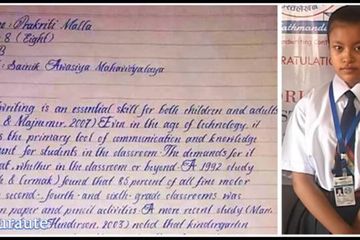 : Prakriti Malla
. 8 (Eight)
B
: Sainik Awasiya Mahavidyalaya
writing is an essential skill for both children and adults
& Majnemer, 2007) Even in the age of technology, it
s the primary tool of communication and knowledge
ent for students in the classroom. The demands for it
eat, whether in the classroom or beyond. A 1992 study
& Cermak) found that 85 percent of all fine motor
n second-, fourth- and sixth-grade classrooms was
n paper and pencil activities. A more recent study (Marr,
Henderson, 2003) noted that kindergarten
athmandu
writing Com
RATULATI